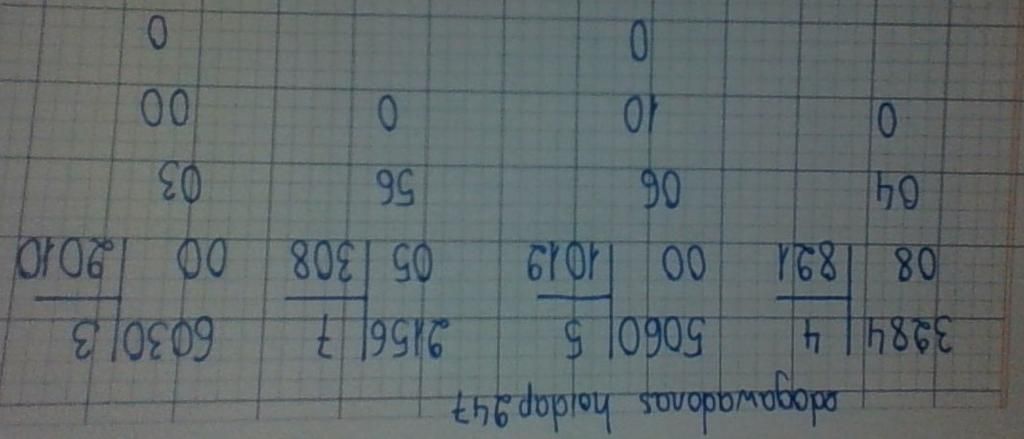 247
3284 4 5060 5 2156 7 6030 3
08 821 00 1012 05 308 00 2010
04 06 56 03
0 10 0 00
0 0